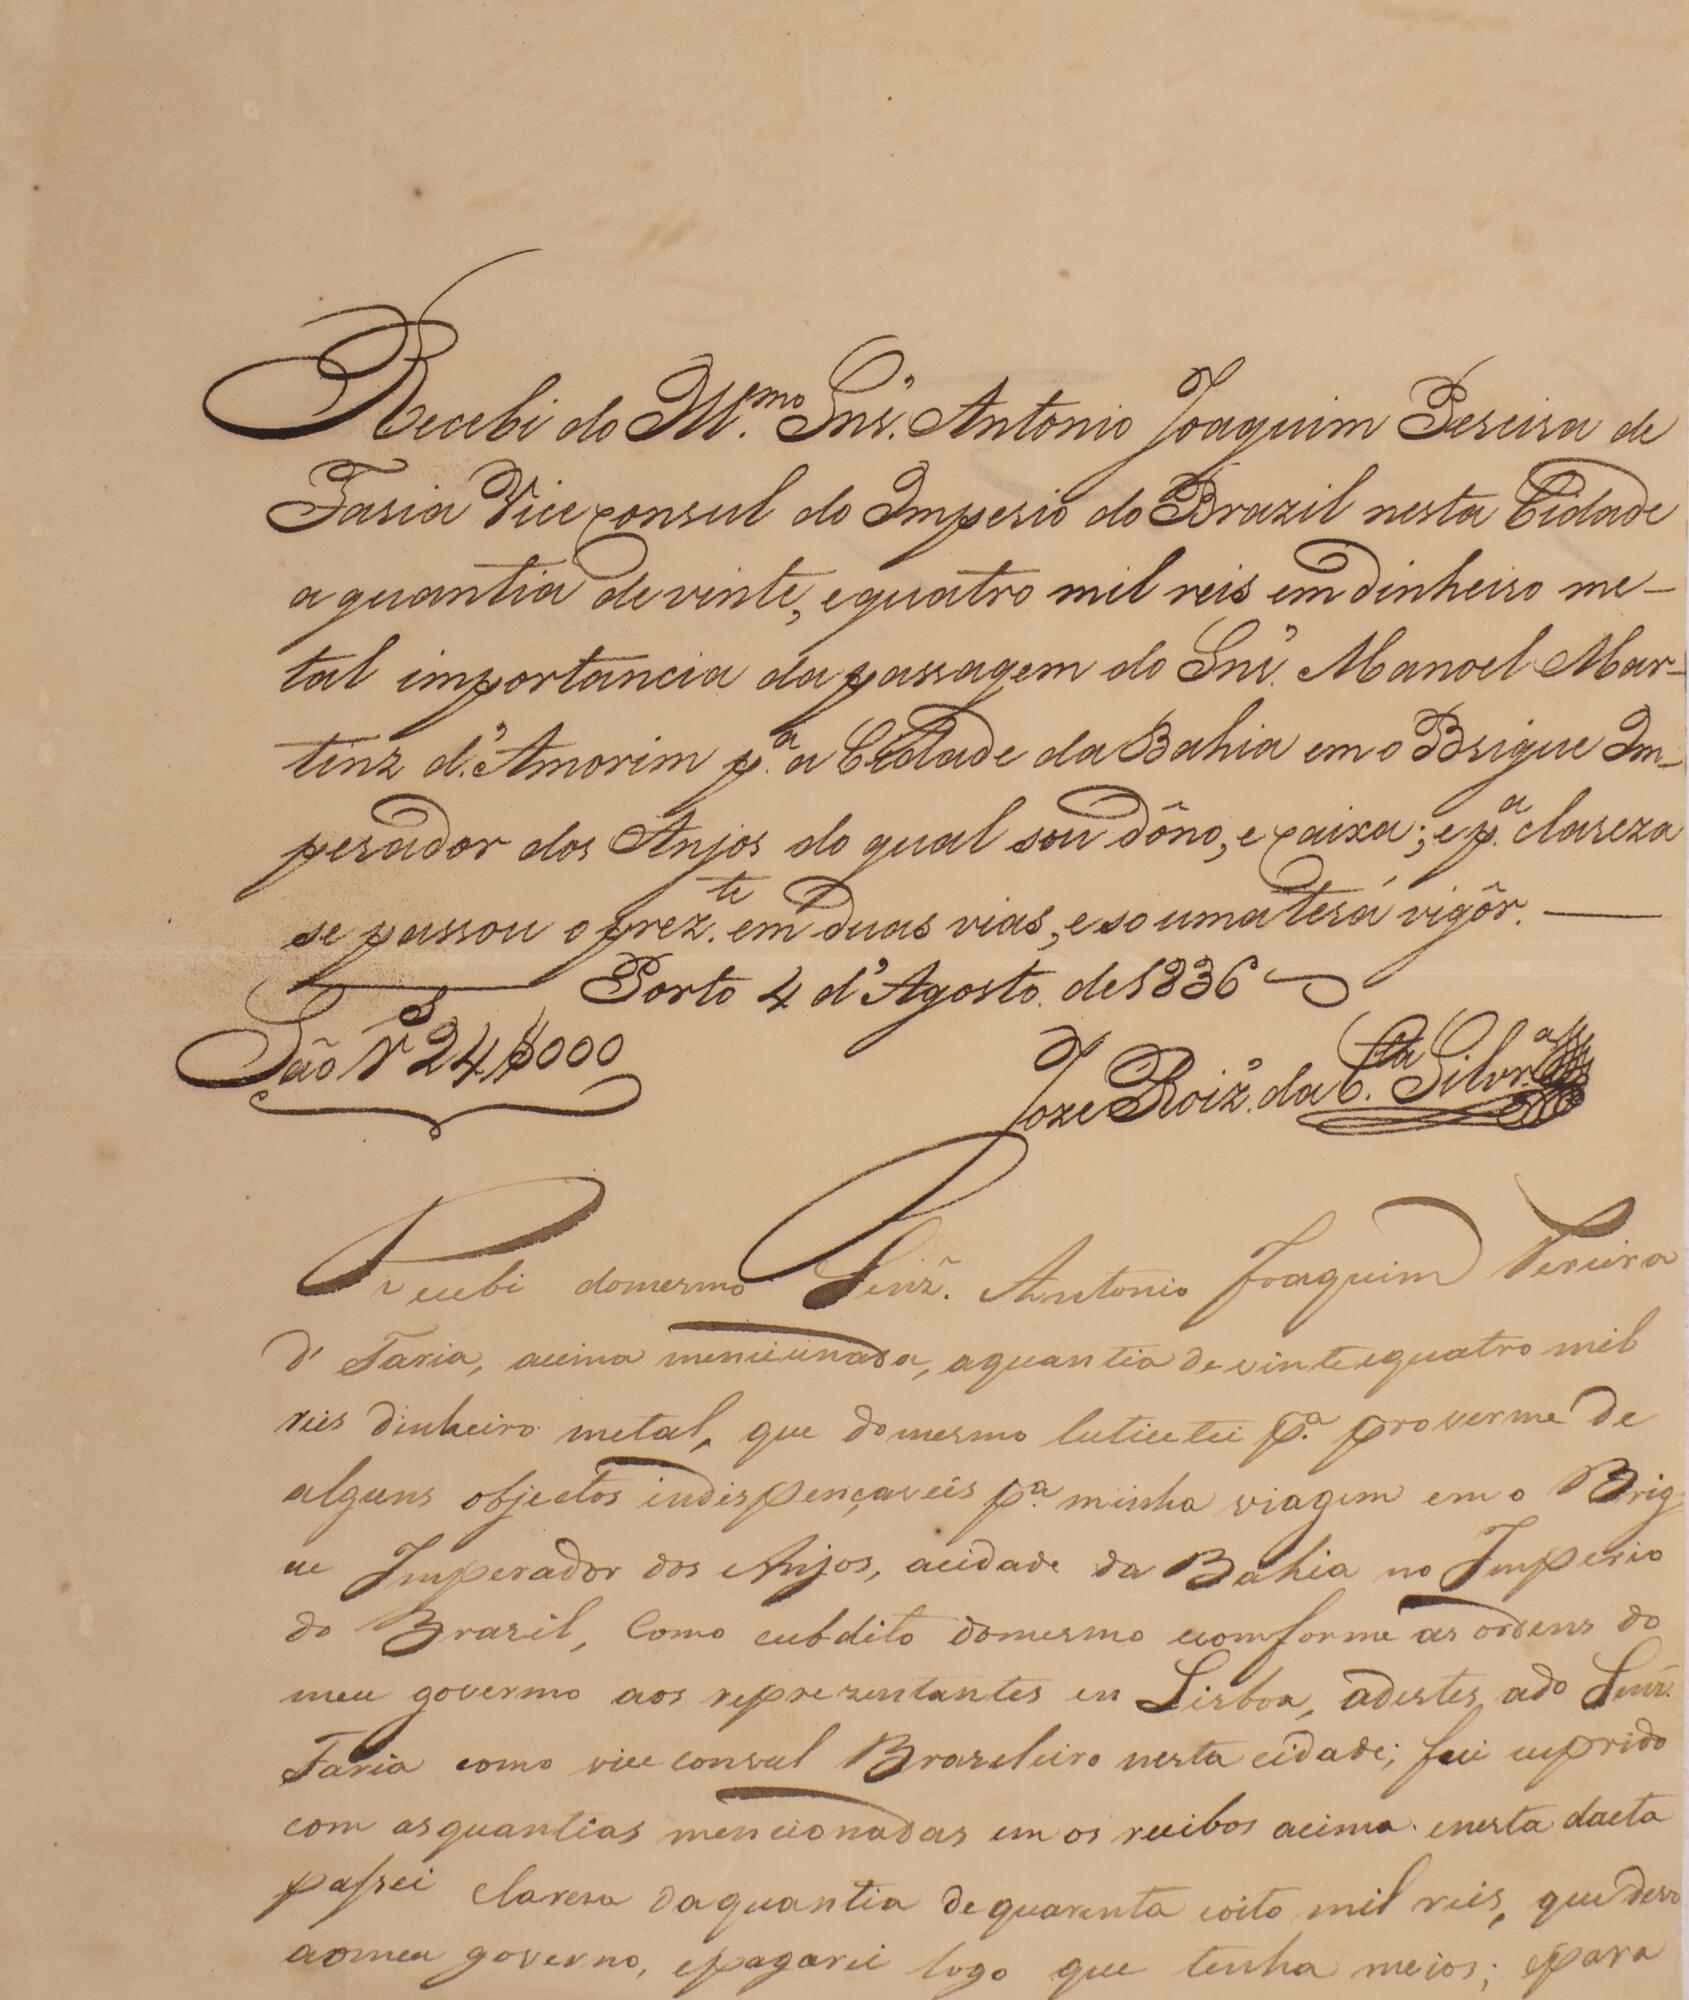 Recebi do Illmo. Snr. Antonio Joaquim Pereira de
Faria Vice consul do Imperio do Brazil nesta Cidade
a quantia de vinte, e quatro mil reis em dinheiro me-
tal importancia da passagem do Snr. Manoel Mar-
tinz d'Amorim pa. a Cidade da Bahia em o Brigue Im-
perador dos Anjos do qual sou dôno, e caixa; e pa. clareza
se passou o prezte. em duas vias, e so uma terá vigôr.
Porto 4 d'Agosto de 1836
São rs 24$000
Joze Roiz. da Cta. Silva
Recebi do mesmo Senr. Antonio Joaquim Pereira
d' Faria, acima mencionada, a quantia de vinte e quatro mil
reis dinheiro metal, que do mesmo

 pa. proverme de
alguns objectos indispençaveis pa. minha viagem em o Brig
ue Imperador dos Anjos, a cidade da Bahia no Imperio
do Brazil, Como cubdito do mesmo e comforme as ordens do
meu governo aos reprezentantes en Lisboa, a destes, a do Senr.
Faria como vice consul Brazeleiro nesta cidade; fui cuprido
com as quantias mencionadas em os recibos acima. e nesta dacta
passei claresa da quantia de quarenta e oito mil reis, que devo
ao meu governo, e pagarei logo que tenha meios; e para